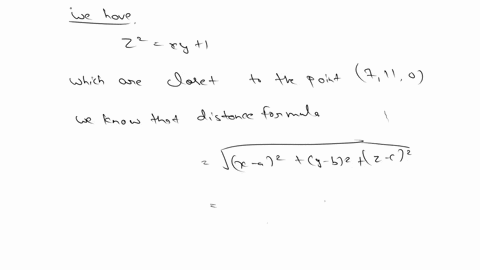 we have.
z² = xy+1
which are closet to the point (7, 11, 0)
we know that distance formula
= √(x-a)² + (y-b)2 + (z-c)²
=